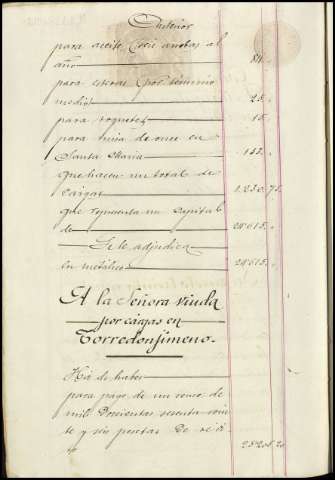 Anterior
para aceite trece arrobas al
año 84.
para esteras por término
medio 25.
para roquetes 15.
para misa de once en
Santa Maria 153.
que hacen un total de
cargas 1.230.75.
que representa un capital
de 24.615.
Se le adjudica
en metálico 24.615.
A la Señora viuda
por cargas en
Torredonjimeno.
Há de haber
para pago de un censo de
mil doscientas sesenta
te y seis pesetas de redi
to 25.205.20